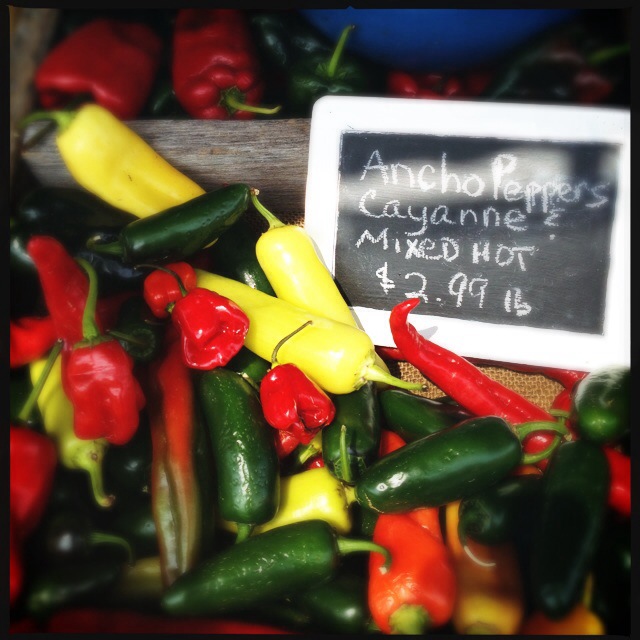 Ancho Peppers
Cayanne &
MIXED HOT
$2.99 lb